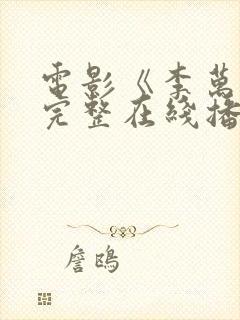 電影《李萬
完整在綫播
詹鴎